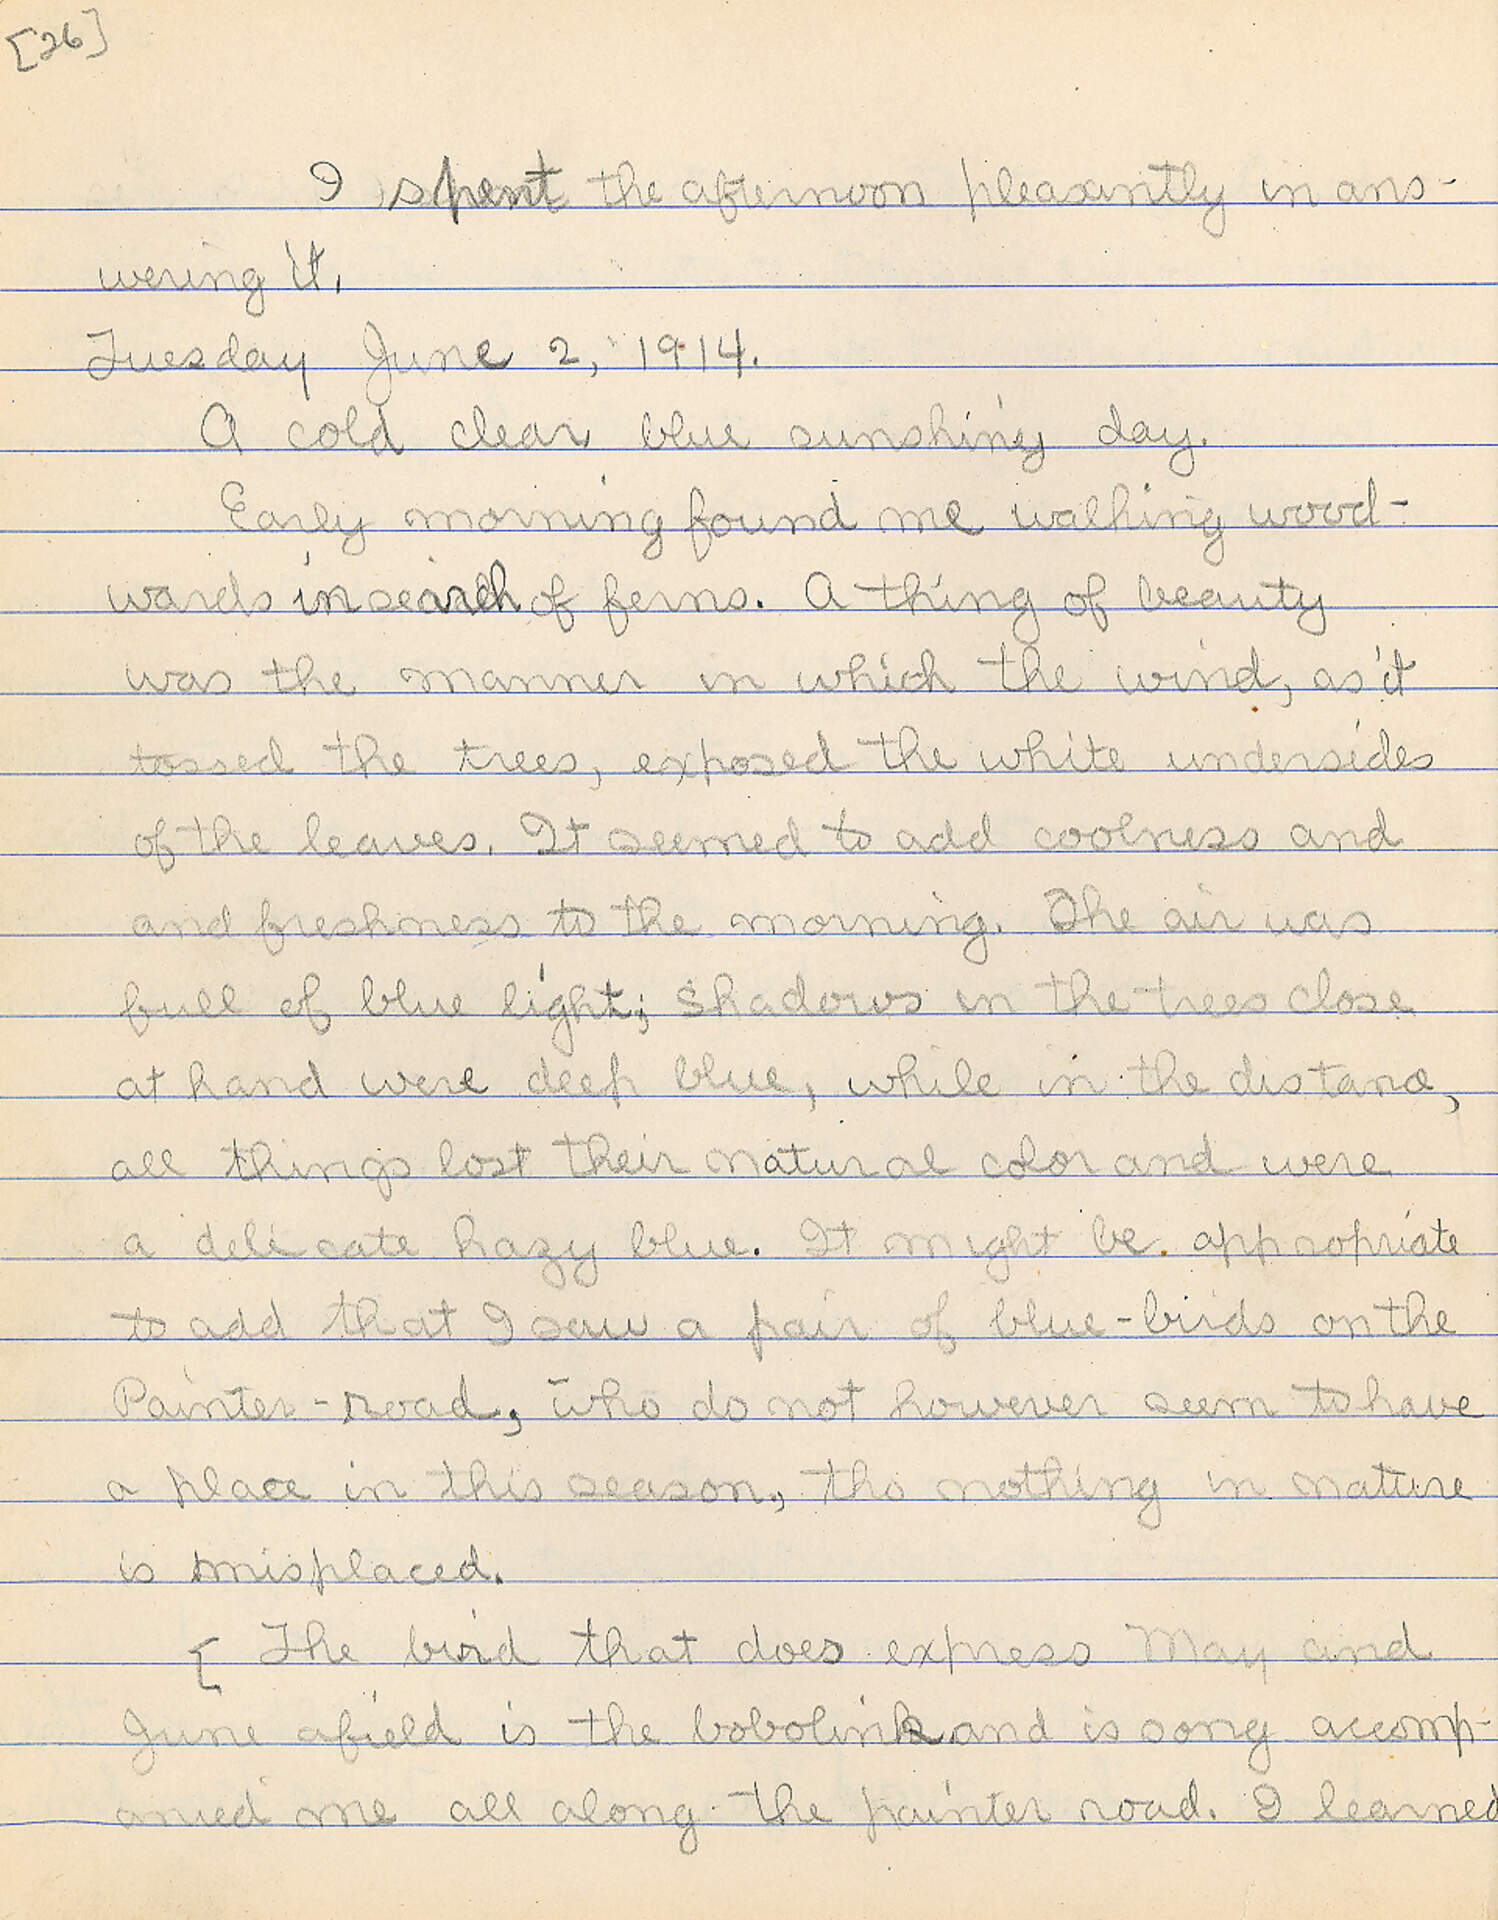 [26]
I spent the afternoon pleasantly in ans-
wering it.
Tuesday June 2, 1914.
A cold clear blue sunshiny day.
Early morning found me walking wood-
wards in search of ferns. A thing of beauty
was the manner in which the wind, as it
tossed the trees, exposed the white undersides
of the leaves. It seemed to add coolness and
and freshness to the morning. The air was
full of blue light; shadows in the trees close
at hand were deep blue, while in the distance,
all things lost their natural color and were
a delicate hazy blue. It might be appropriate
to add that I saw a pair of blue-birds on the
Painter-road, who do not however seem to have
a place in this season, tho nothing in nature
is misplaced.
[ The bird that does express May and
June afield is the bobolink and is song accomp-
anied me all along the painter road. I learned